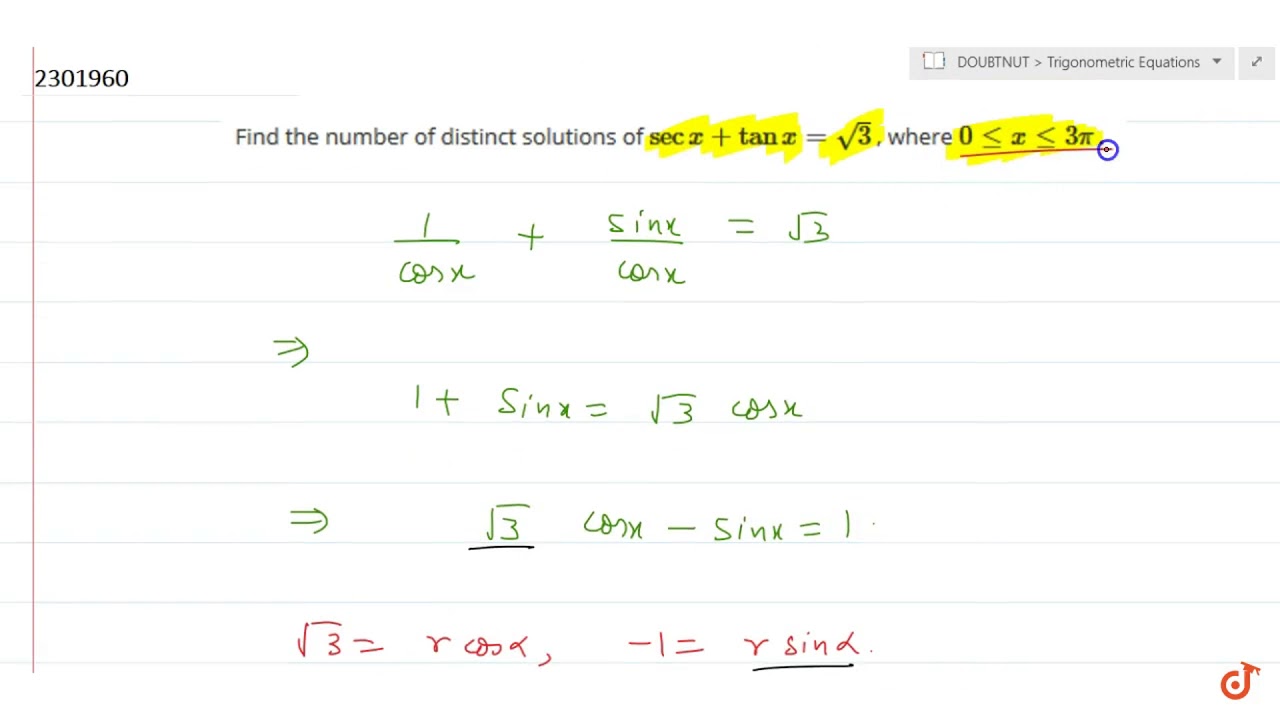 2301960
DOUBTNUT > Trigonometric Equations
Find the number of distinct solutions of sec x + tan x = √3, where 0 ≤ x ≤ 3π
1/cosx + sinx/cosx = √3
⇒
1 + sinx = √3 cosx
⇒ √3 cosx − sinx = 1
√3 = r cosα, −1 = r sinα.